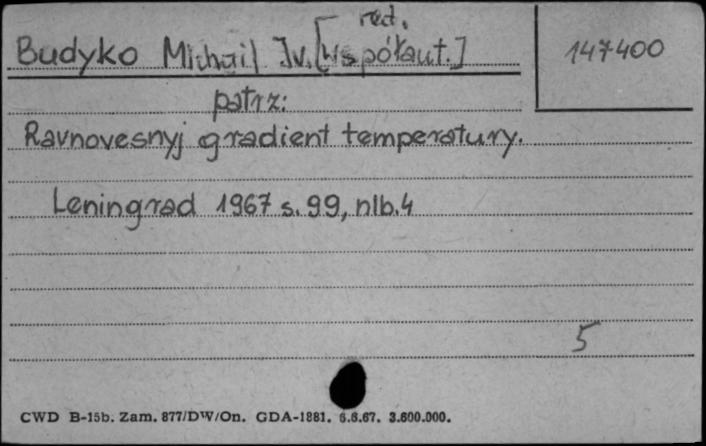 red.
Budyko Michail Iv. [współaut.]
147400
patrz:
Ravnovesnyj gradient temperatury.
Leningrad 1967 s. 99, nlb. 4
5
CWD B-15b. Zam. 877/DW/On. GDA-1881. 6.6.67. 3.600.000.